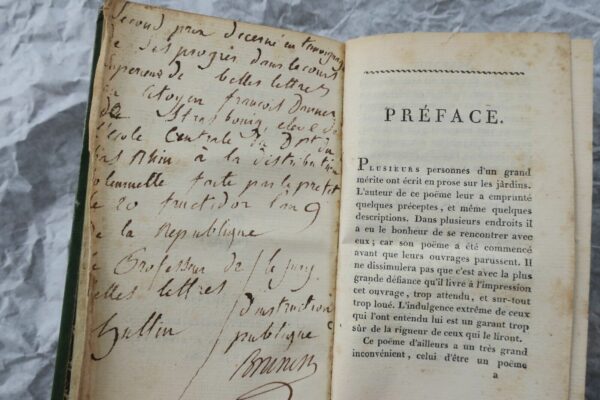 Second prix decerné en temoignage
de des progrès dans le cours
superieur de belles lettres
au citoyen françois
de Strasbourg, eleve de
l'ecole Centrale Du Dptm du
bas Rhin à la distribution
solemnelle faite par le prefet
le 20 fructidor l'an 9
de la Republique
le Professeur de / le jury
belles lettres
D'instruction
publique
PRÉFACE.
PLUSIEURS personnes d'un grand
mérite ont écrit en prose sur les jardins.
L'auteur de ce poëme leur a emprunté
quelques préceptes, et même quelques
descriptions. Dans plusieurs endroits il
a eu le bonheur de se rencontrer avec
eux; car son poëme a été commencé
avant que leurs ouvrages parussent. Il
ne dissimulera pas que c'est avec la plus
grande défiance qu'il livre à l'impression
cet ouvrage, trop attendu, et sur-tout
trop loué. L'indulgence extrême de ceux
qui l'ont entendu lui est un garant trop
sûr de la rigueur de ceux qui le liront.
Ce poëme d'ailleurs a un très grand
inconvénient, celui d'être un poëme
a